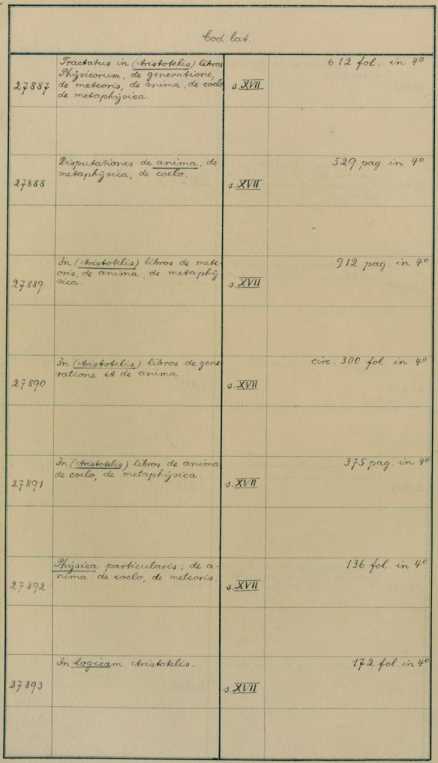 Cod. lat.
Tractatus in (Aristotelis) libros
Physicorum, de generatione,
27887 de meteoris, de anima, de coelo, s. XVII 612 fol. in 4º
de metaphysica.
Disputationes de anima, de
27888 metaphysica, de coelo. s. XVII 529 pag. in 4º
In (Aristotelis) libros de mete-
oris, de anima, de metaphy-
27889 sica. s. XVII 912 pag. in 4º
In (Aristotelis) libros de gene-
27890 ratione et de anima s. XVII circ. 300 fol. in 4º
In (Aristotelis) libros de anima
27891 de coelo, de metaphysica. s. XVII 375 pag. in 4º
Physica particularis, de a-
27892 nima de coelo, de meteoris. s. XVII 136 fol. in 4º
27893 In Logicam Aristotelis. s. XVII 172 fol. in 4º